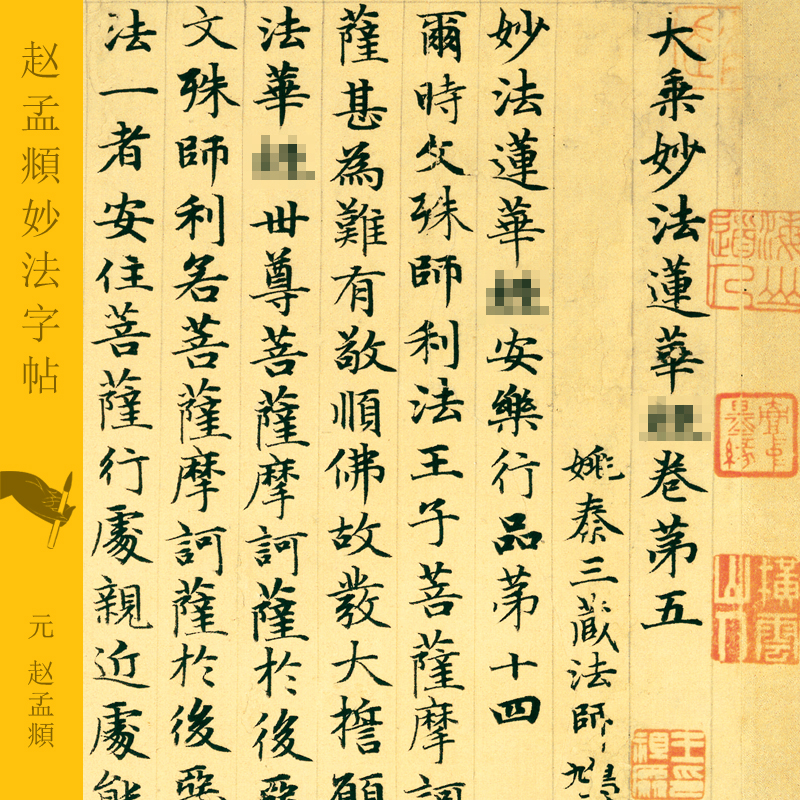 赵孟頫妙法字帖
元 赵孟頫
大乘妙法蓮華卷第五
姚秦三藏法師
妙法蓮華安樂行品第十四
爾時文殊師利法王子菩薩摩訶
薩甚為難有敬順佛故發大誓願
法華世尊菩薩摩訶薩於後惡
文殊師利若菩薩摩訶薩於後惡
法一者安住菩薩行處親近處能